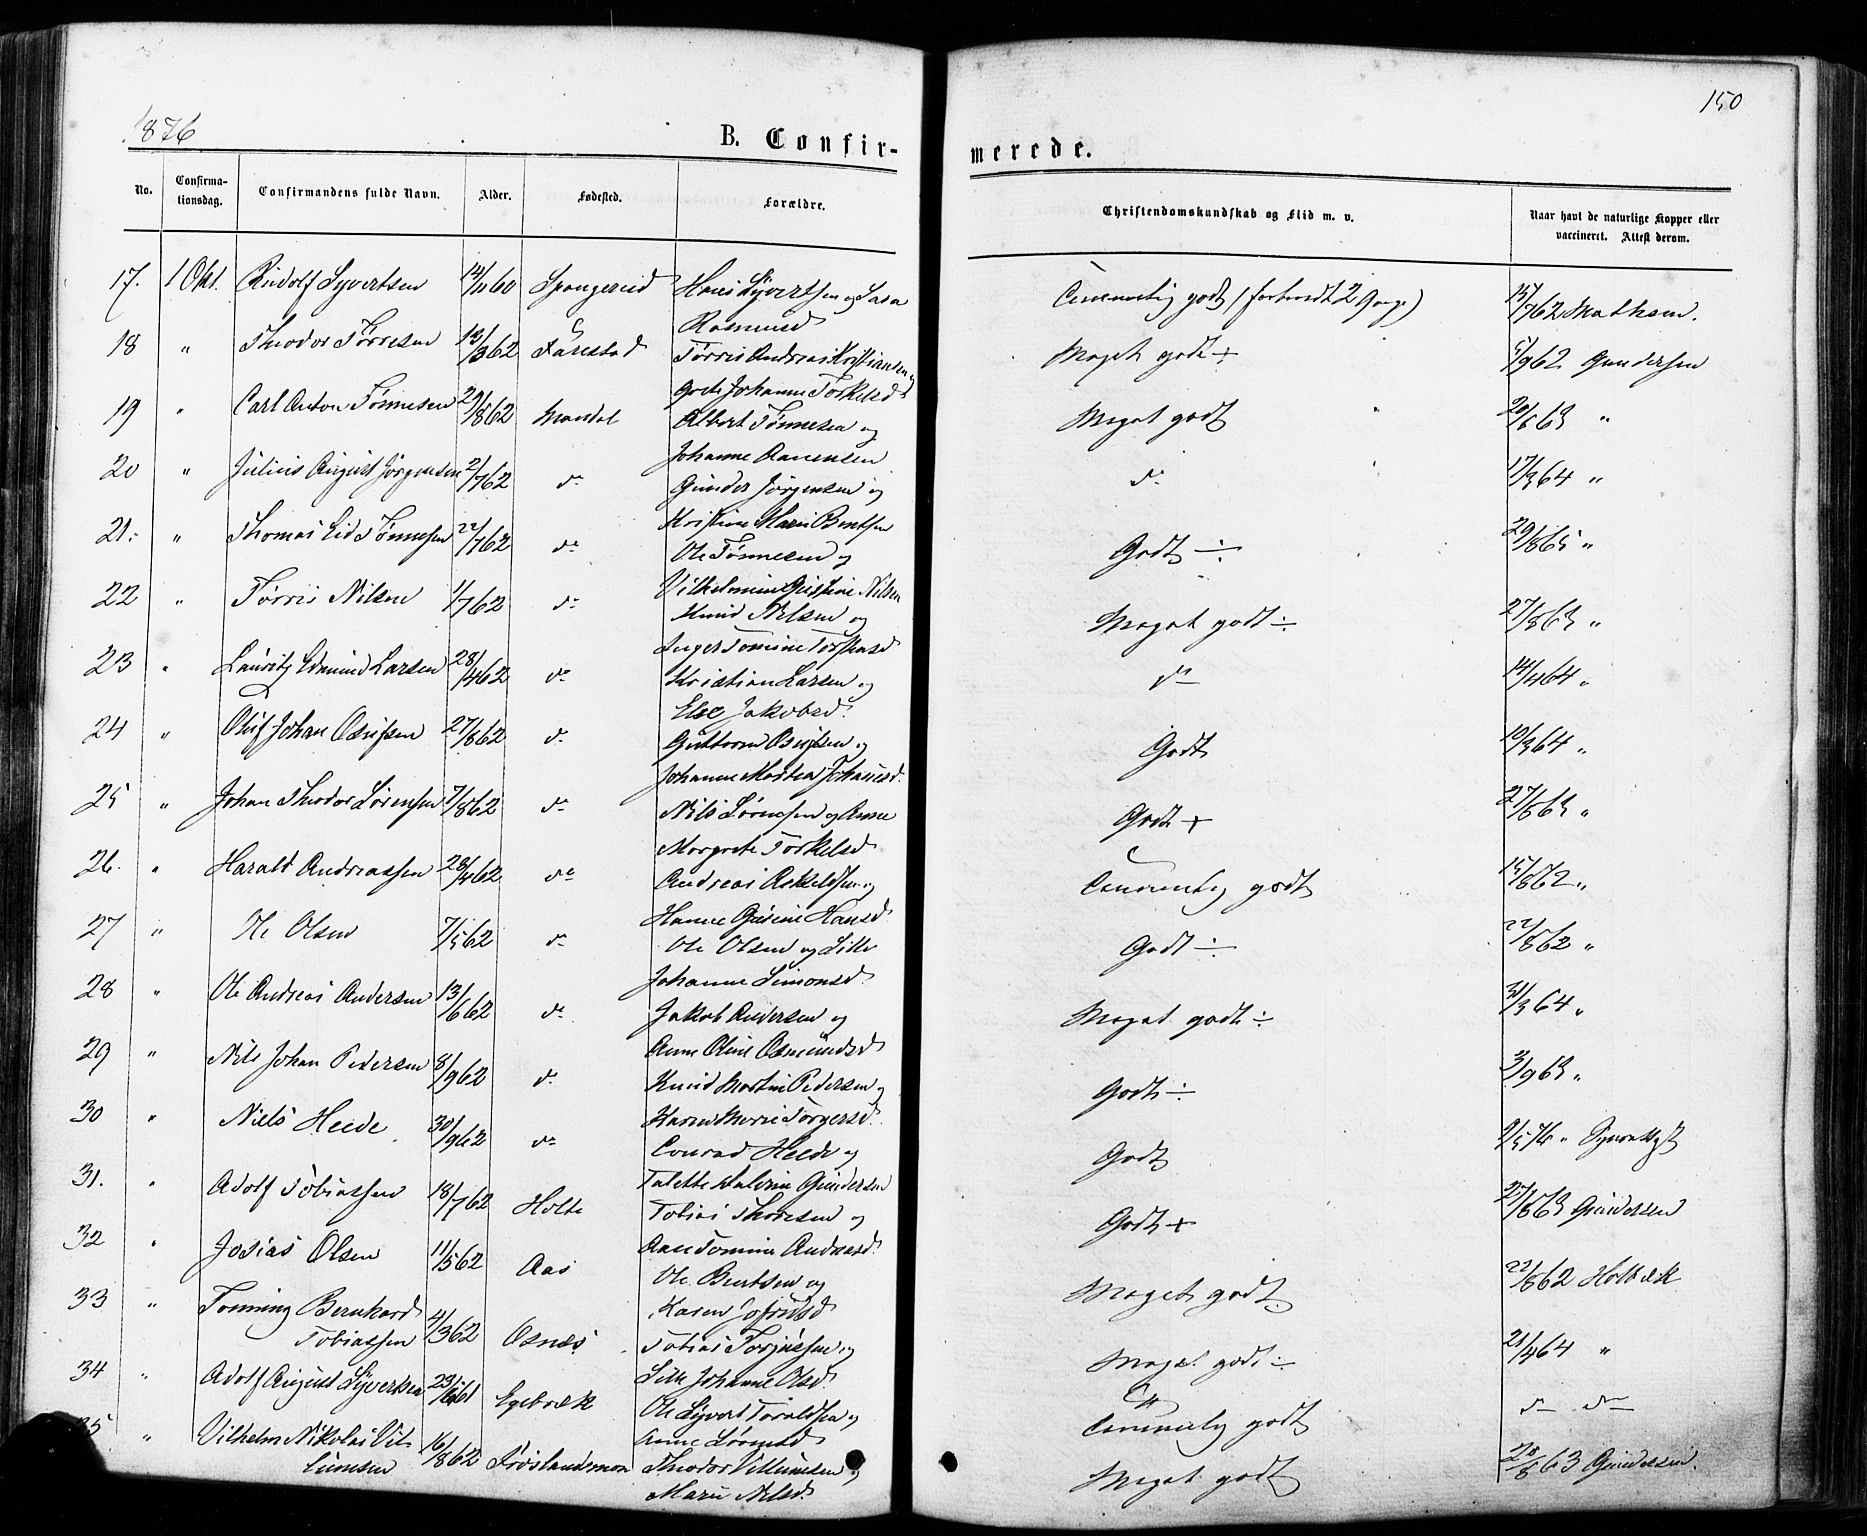 1876
150
B. Confir-
merede.
No.
Confirma-
tionsdag.
Confirmandens fulde Navn.
Alder.
Fødested.
Forældre.
Christendomskundskab og Flid m. v.
Naar havt de naturlige Kopper eller
vaccineret. Attest derom.
17. 1 Okt. Rudolf Syvertsen 14/1160 Spangereid Hans Syvertsen og Rasmusd Temmelig godt (forhørdt 2 Gange) 15/762 Mathsen.
18 " Theodor Tørresen 13/362 Farestad Tørris Andreas Kristiansen og
Grete Johanne Torkelsd Meget godt ÷ /962 Gundersen
19 " Carl Anton Tønnesen 29/862 Mandal Albert Tønnesen og
Johanne Aanensen Meget godt 20/863 "
20 " Julius August Jørgensen 2/762 do Gunder Jørgensen og
Kristine Marie Bentsen do 17/364 "
21. " Thomas Eid Tønnesen 22/762 do Ole Tønnesen og
Vilhelmine Nilsen Godt ÷ 29/865 "
22 " Tørris Nilsen 1/762 do Knud Nilsen og
Inger Tomine Meget godt ÷ 27/863 "
23 " Lauritz Edmund Larsen 28/462 do Kristian Larsen og
Else Jakobsd. do 14/464 "
24 " Oluf Johan Osufsen 27/862 do Guttorm Osufsen og
Johanne Martea Johansd. Godt 10/364 "
25 " Johan Theodor Sørensen 7/862 do Nils Sørensen og Anne
Margrete Torkelsd Godt + 27/863 "
26. " Harald Andreassen 28/462 do Andreas Askildsen og
Hanne Gurine Hansd Temmelig godt 15/862 "
27 " Ole Olsen 7/562 do Ole Olsen og Sille
Johanne Simonsd. Godt ÷ 22/862 "
28 " Ole Andreas Andersen 13/662 do Jakob Andersen og
Anne Oline Osmundsd Meget godt ÷ 31/364 "
29 " Nils Johan Pedersen 8/962 do Knud Martin Pedersen og
Karen Marie Torgersd. Godt ÷ 2/963 "
30 " Niels Heede 30/962 do Conrad Heede og
Talette Gundersen Godt 9/576 "
31. " Adolf Tobiassen 18/762 Holte Tobias Thoresen og
Ane Tomine Andreasd. Godt + 27/863 Gundersen
32 " Josias Olsen 11/562 Aas Ole Bentsen og
Karen Josefsd Meget godt 22/862 Holbæk
33 " Tønning Bernhard
Tobiassen 4/362 Osnæs Tobias Torjussen og
Sille Johanne Olsd. Meget godt ÷ 21/464 "
34 " Adolf August Syvertsen 23/1261 Egebræk Ole Syvert Toraldsen og
Anne Sørensd. Temmelig godt do do
35 " Vilhelm Nikolai Vil-
lumsen 16/862 Frøslandsmon Theodor Villumsen og
Maren Nilsd. Meget godt 28/863 Gundersen.